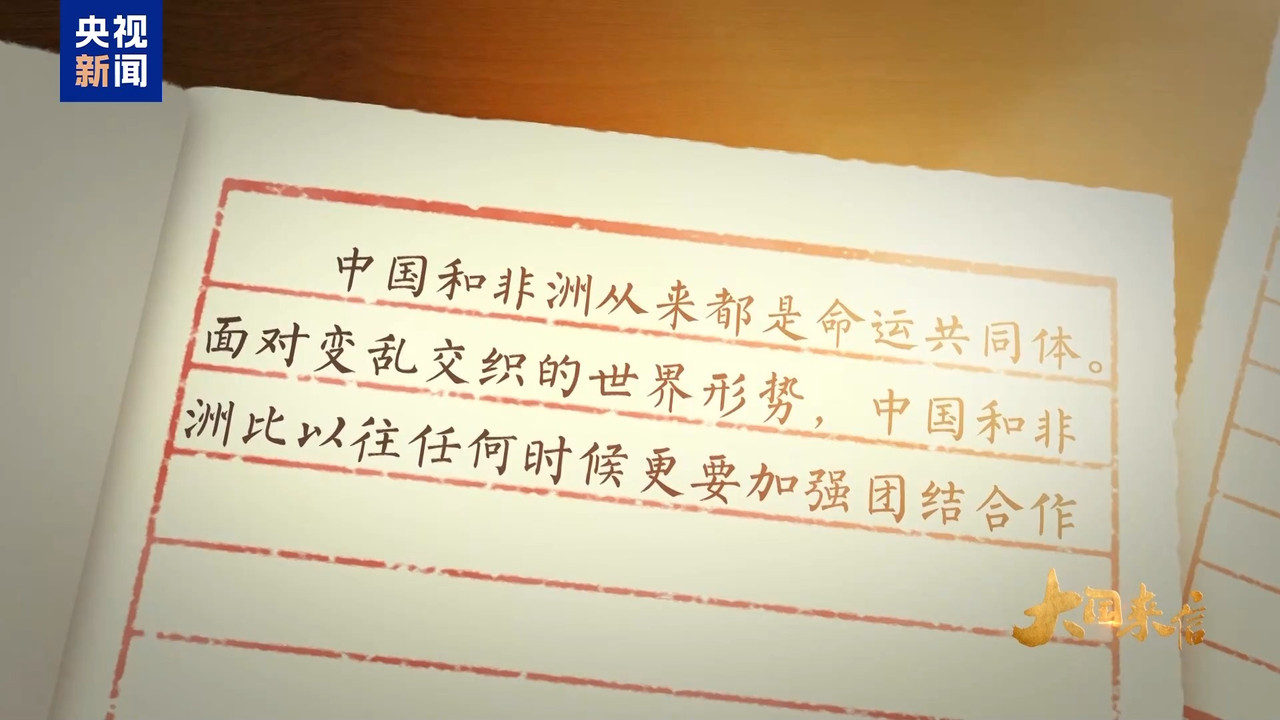 央视
新闻
中国和非洲从来都是命运共同体。
面对变乱交织的世界形势，中国和非
洲比以往任何时候更要加强团结合作
大国来信